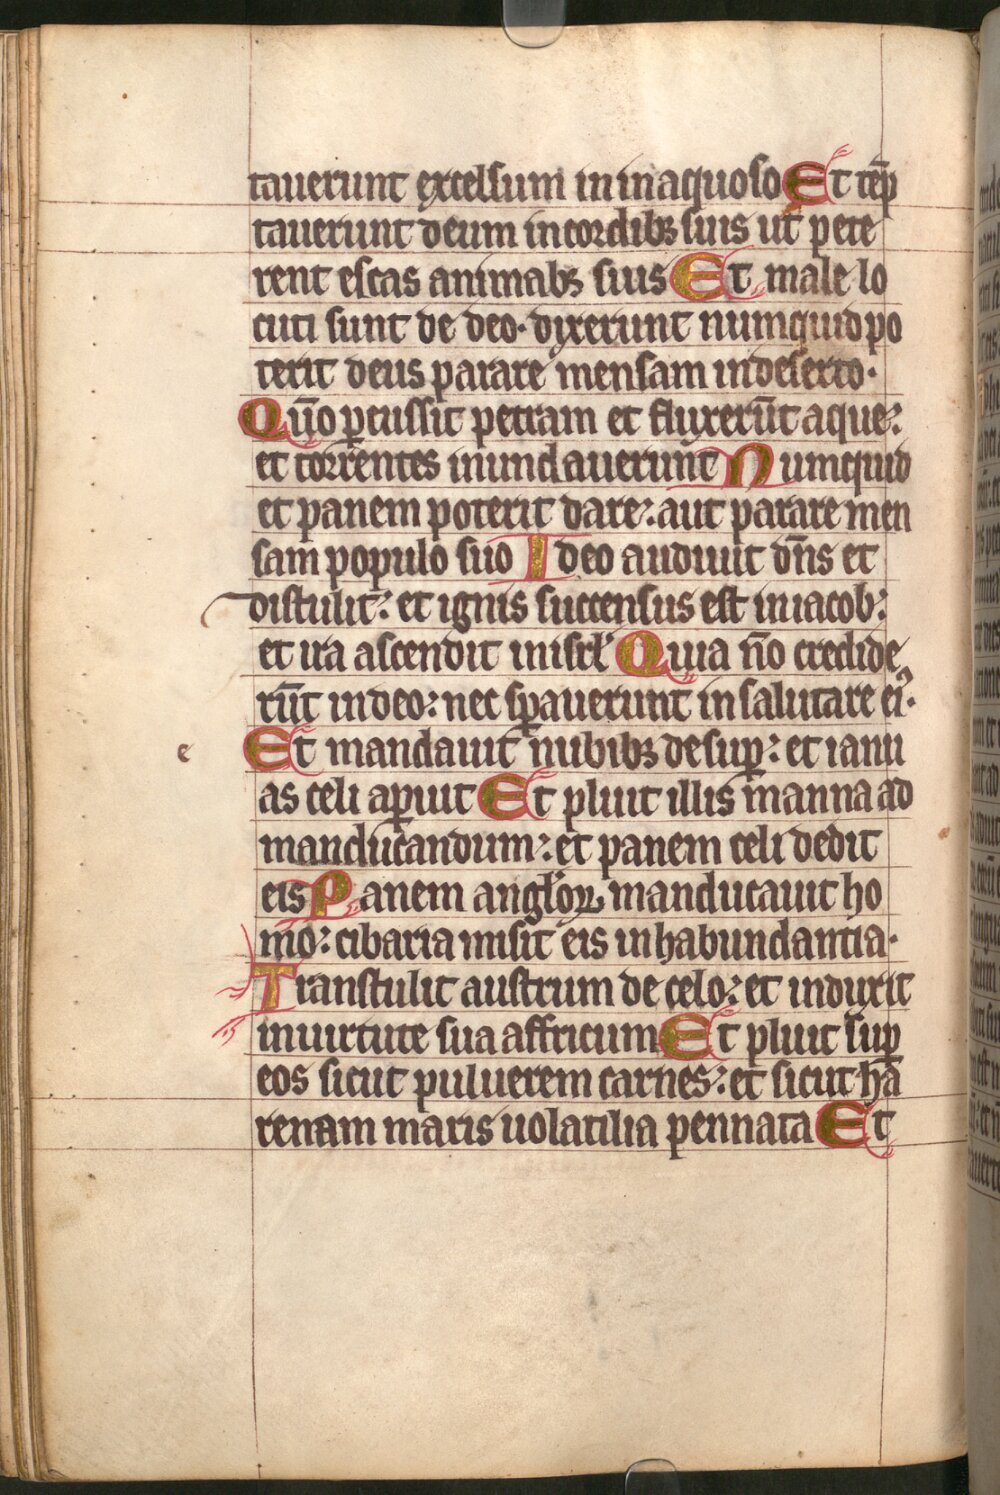 tauerunt excelsum in inaquoso Et tēp
tauerunt deum in cordibꝫ suis ut pete
rent escas animabꝫ suis Et male lo
cuti sunt de deo· dixerunt numquid po
terit deus parare mensam in deserto·
Qūo ꝑcussit petram et fluxerūt aque:
et torrentes inundauerunt Numquid
et panem poterit dare: aut parare men
sam populo suo Ideo audiuit dn̄s et
distulit: et ignis succensus est in iacob:
et ira ascendit in isrl̓ Quia nō credide
rūt in deo: nec sꝑauerunt in salutare eiꝰ·
Et mandauit nubibꝫ desuꝑ: et ianu
e
as celi aꝑuit Et pluit illis manna ad
manducandum: et panem celi dedit
eis Panem angl̓oꝝ manducauit ho
mo: cibaria misit eis in habundantia·
Transtulit austrum de celo: et induxit
in uirtute sua affricum Et pluit suꝑ
eos sicut puluerem carnes: et sicut ha
renam maris uolatilia pennata Et